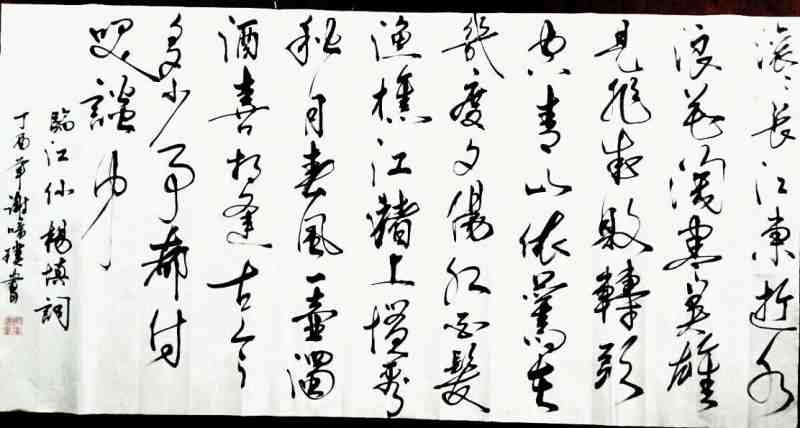 滚滚长江東逝水
浪花淘盡英雄
是非成敗轉頭
空青山依舊在
幾度夕陽红白髮
漁樵江渚上慣看
秋月春風一壺濁
酒喜相逢古今
多少事都付
笑談中
臨江仙 楊慎詞
丁酉年謝書